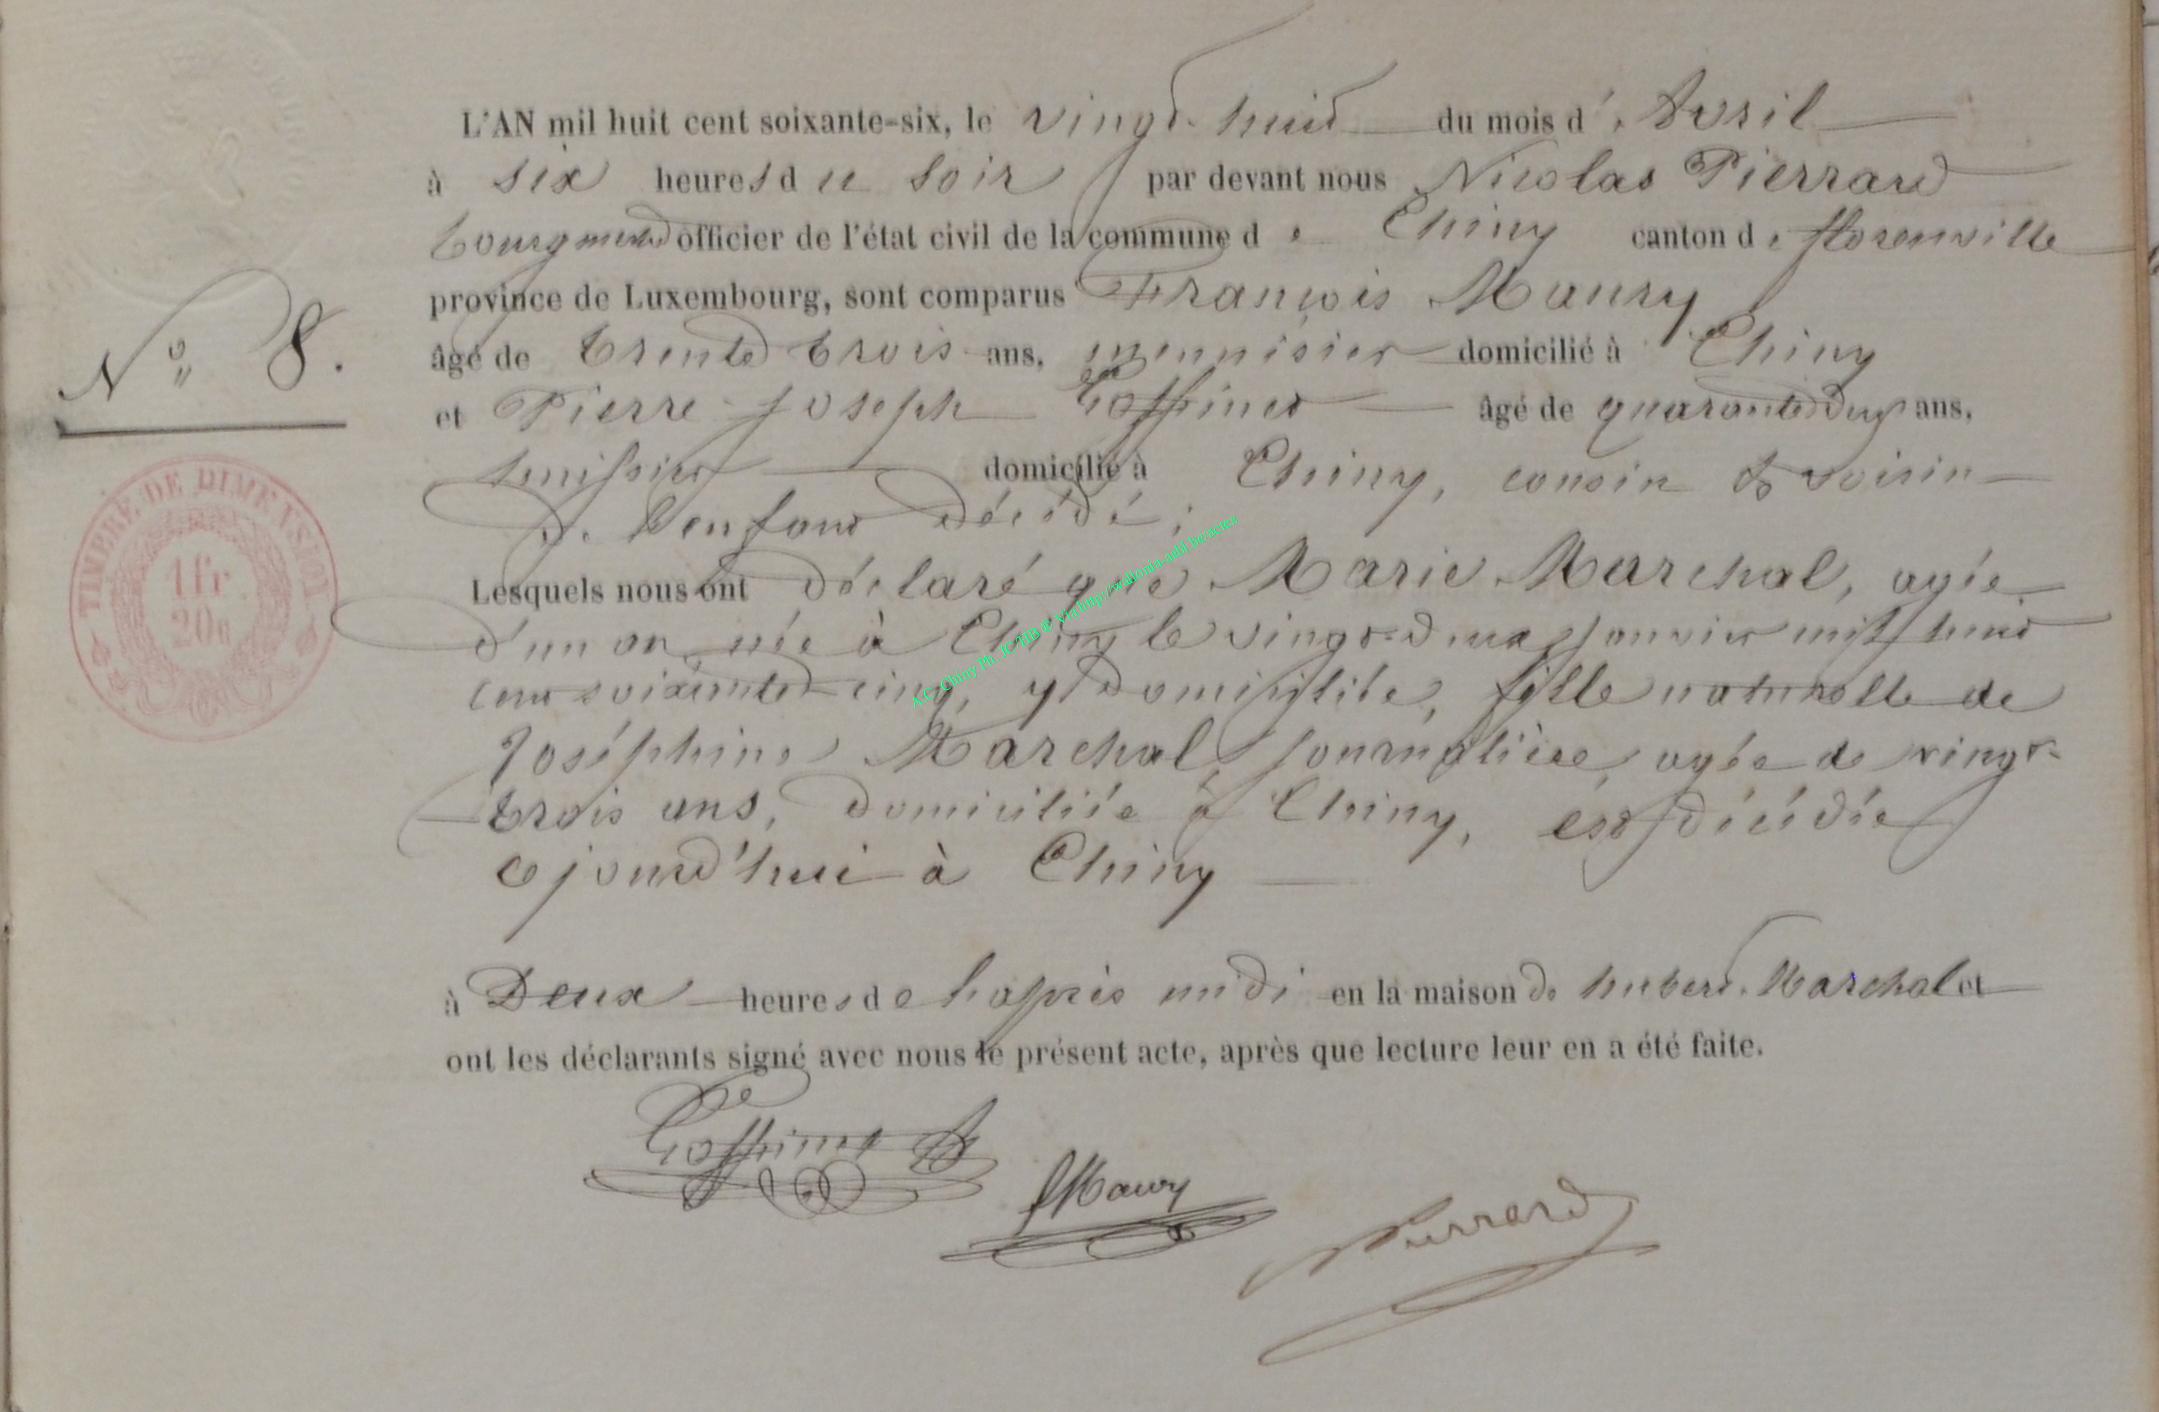 L'AN mil huit cent soixante-six, le vingt-huit du mois d'Avril
à six heures du soir par devant nous Nicolas Pierrard
bourgmestre officier de l'état civil de la commune de Chiny canton de florenville
province de Luxembourg, sont comparus François Maury
N° 8.
âgé de trente trois ans, menuisier domicilié à Chiny
et Pierre-Joseph Goffinet âgé de quarante deux ans,
huissier domicilié à Chiny, cousin & voisin
de l'enfant décédé;
TIMBRE DE DIMENSION
1fr
20c
Lesquels nous ont déclaré que Marie Marchal, agée
d'un an, née à Chiny le vingt-deux Janvier mil huit
cent soixante cinq, y domicilié, fille naturelle de
Joséphine Marchal, journalière, agée de vingt-
trois ans, domiciliée à Chiny, est décédée
cejourd'hui à Chiny
à Deux heures de l'après midi en la maison de hubert Marchal et
ont les déclarants signé avec nous le présent acte, après que lecture leur en a été faite.
Goffinet
fMaury
Pierrard